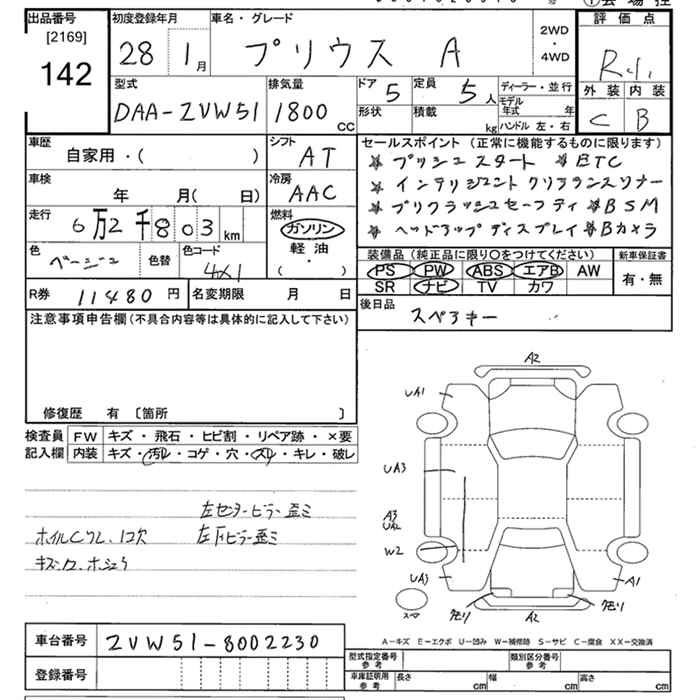 出品番号
[2169]
142
初度登録年月
28 1月
車名・グレード
プリウス A
2WD
・
4WD
評価点
R-1
外装 内装
C B
型式
DAA-ZVW51
排気量
1800 CC
ドア 5
形状
定員 5人
積載 kg
ディーラー・並行
モデル年式 年
ハンドル 左・右
車歴
自家用・( )
シフト
AT
車検
年 月( 日)
冷房
AAC
走行
6万2千803km
燃料
ガソリン
軽油
・
( )
色
ベージュ
色替
色コード
4X1
R券 11480円
名変期限 月 日
セールスポイント (正常に機能するものに限ります)
☆ プッシュスタート ☆ETC
☆ インテリジェントクリアランスソナー
☆ プリクラッシュセーフティ ☆BSM
☆ ヘッドアップディスプレイ ☆Bカメラ
装備品 (純正品に限り○をつけてください)
PS PW ABS エアB AW
SR ナビ TV カワ
新車保証書
有・無
後日品
スペアキー
注意事項申告欄(不具合内容等は具体的に記入して下さい)
修復歴 有 〔箇所 〕
検査員記入欄
FW キズ・飛石・ヒビ割・リペア跡・×要
内装 キズ・汚レ・コゲ・穴・スレ・キレ・破レ
左センターピラー歪ミ
ホイルCワレ、1コ欠 左Fピラー歪ミ
A2
UA1
UA3
A3
UA2
W2
UA3
A1
クモリ
クモリ
A2
スペア
A-キズ E-エクボ U-凹み W-補修跡 S-サビ C-腐食 XX-交換済
車台番号 ZVW51-8002230
登録番号
型式指定番号 参考
類別区分番号 参考
車庫証明用 参考
長さ cm
幅 cm
高さ cm